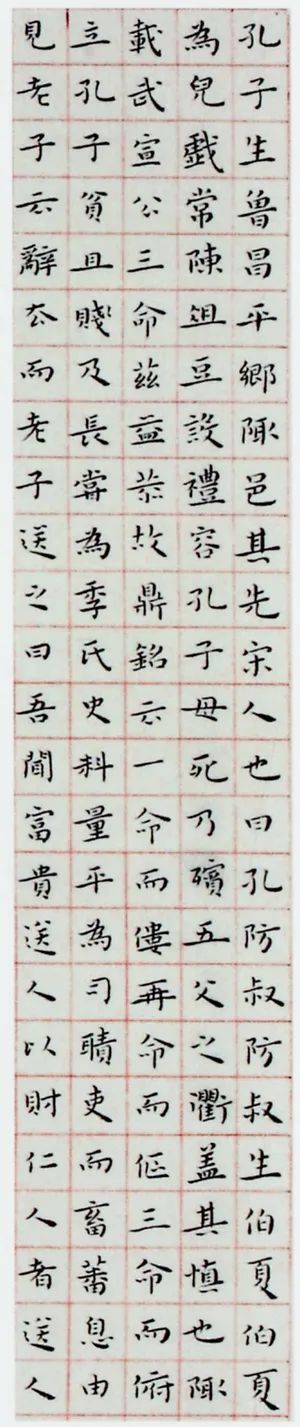 孔子生魯昌平鄉陬邑其先宋人也曰孔防叔防叔生伯夏伯夏
為兒戲常陳俎豆設禮容孔子母死乃殯五父之衢蓋其慎也陬
載武宣公三命茲益恭故鼎銘云一命而僂再命而傴三命而俯
立孔子貧且賤及長嘗為季氏史料量平為司職吏而畜蕃息由
見老子云辭去而老子送之曰吾聞富貴送人以財仁人者送人